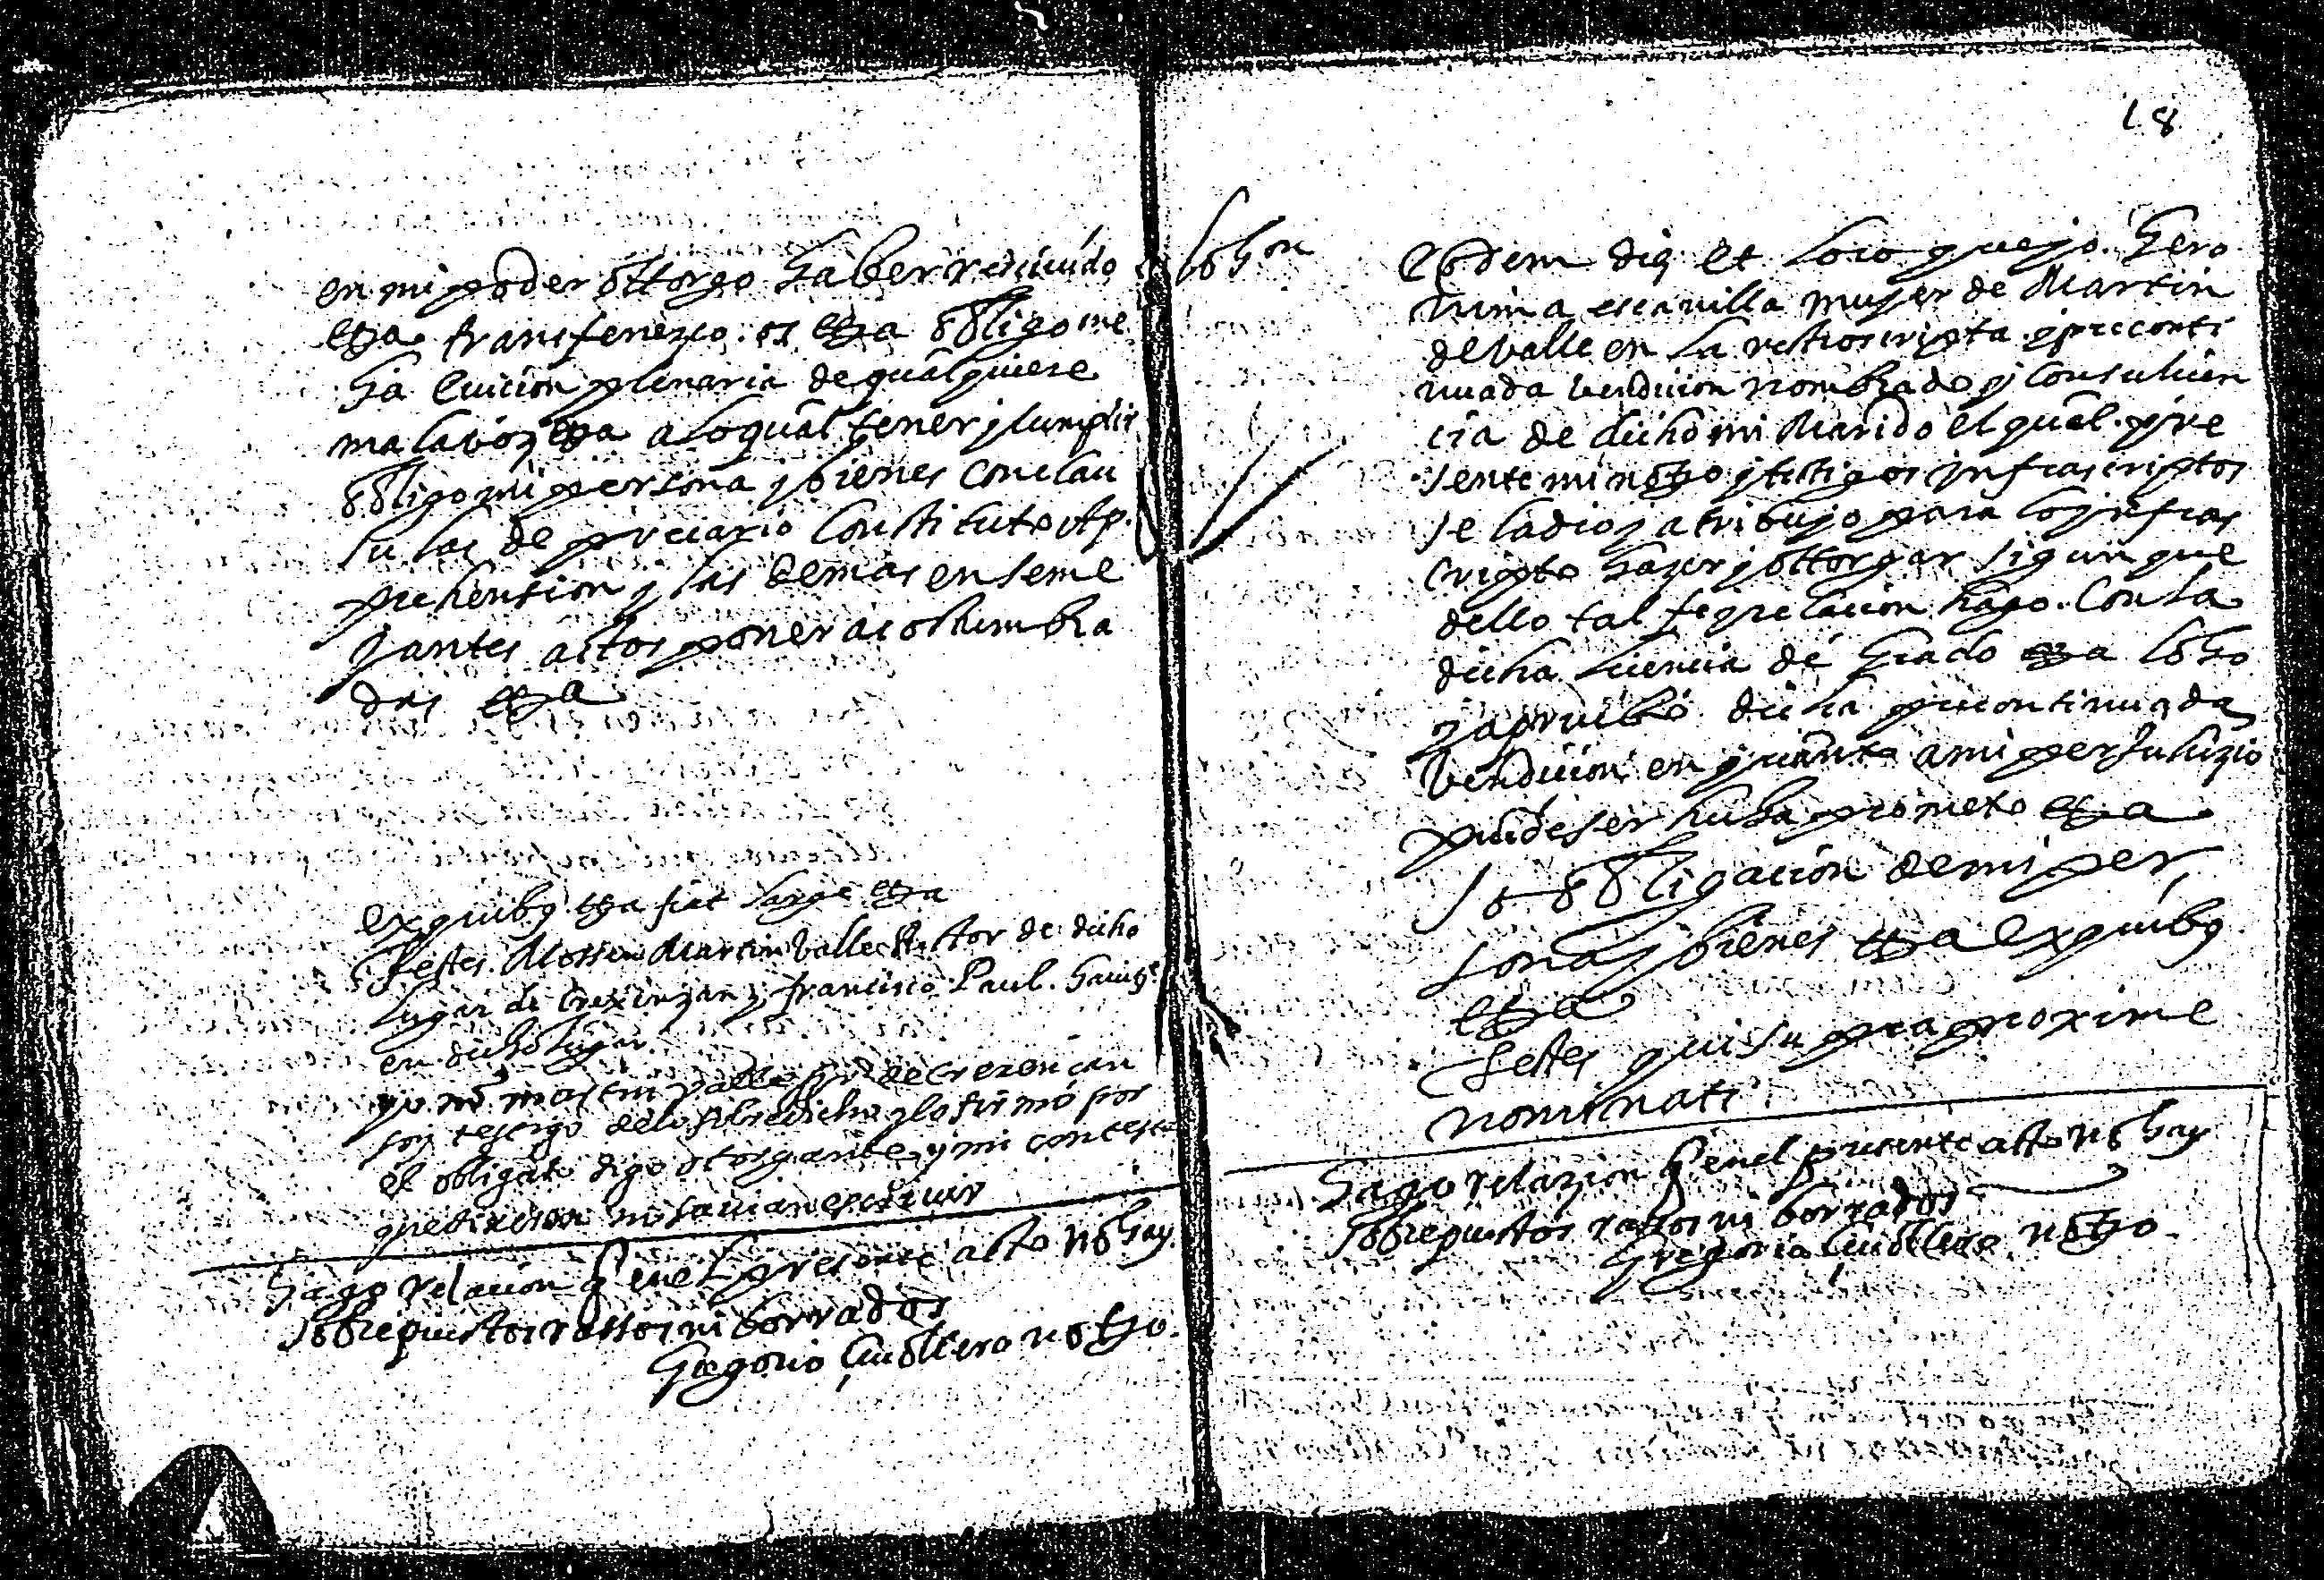 en mi poder ottorgo haber recivido
etza transferezco os etza obligome
ha eviccion plenaria de qualquiere
mala voz etza a lo qual tener y cumplir
obligo mi persona y bienes con clau
sulas de precario constituto Ap
prehension y las demas en seme
jantes actos poner acostumbra
das etza
ex quibus etza fiat large etza
Testes Mossen Martin Valle Rector de dicho
lugar de Crexenzan y Francisco Paul havite
en dicho lugar
yo mº martin Valle Rr de crexencan
soy testigo de lo sobredicho y lo firmo por
el obligato digo otorgante y mi conteste
que dixeron no savian escrivir
Hago relacion q en el presente acto no hay
sobrepuestos rassos ni borrados
Gregorio notro
18
lohon
Eodem die et loco que yo Hero
nima escavilla mujer de Martin
de Valle en la retroscripta y preconti
nuada vendicion nombrado y con su licen
cia de dicho mi Marido el qual pre
sente mi notro y testigos infrascriptos
se la dio y atribuyo para lo infras
cripto hazer y ottorgar sigun que
dello tal fe y relacion hago. Con la
dicha licencia de grado etza loho
y apruebo dicha precontinuada
vendicion en quanto a mi perjuhizio
puede ser hecha prometo etza
so obligacion de mi per
sona y bienes etza ex quibus
etza
Testes qui supra proxime
nominati
Hago relazion q en el presente acto no hay
sobrepuestos rassos ni borrados
Gregorio notro